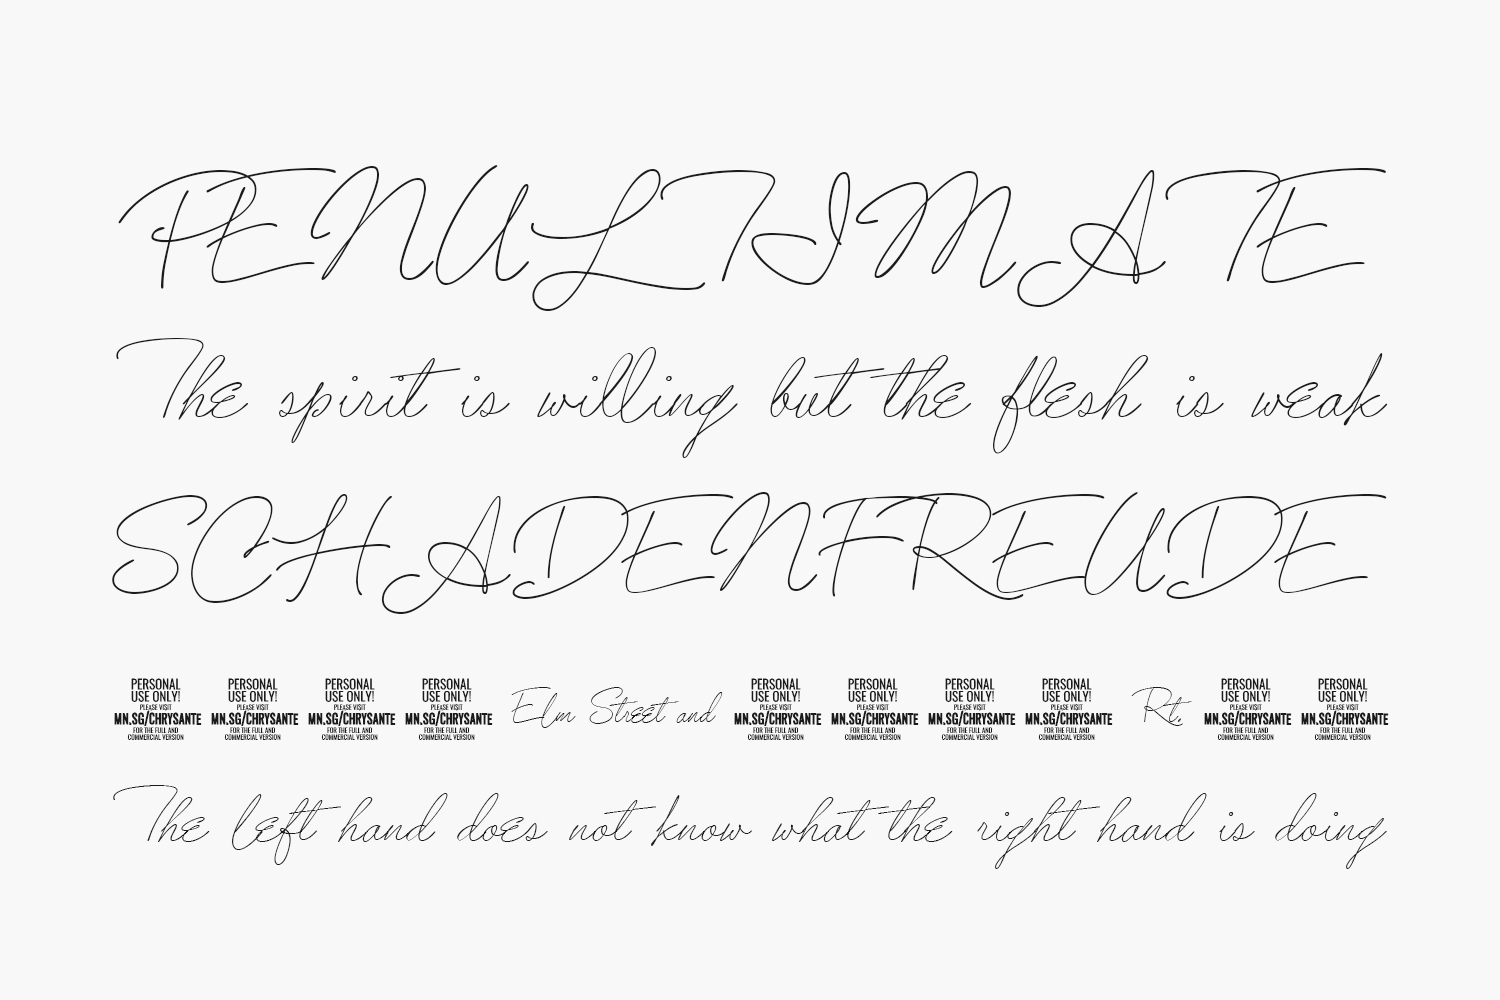 PENULTIMATE
The spirit is willing but the flesh is weak
SCHADENFREUDE
PERSONAL USE ONLY! PLEASE VISIT MN.SG/CHRYSANTE FOR THE FULL AND COMMERCIAL VERSION PERSONAL USE ONLY! PLEASE VISIT MN.SG/CHRYSANTE FOR THE FULL AND COMMERCIAL VERSION PERSONAL USE ONLY! PLEASE VISIT MN.SG/CHRYSANTE FOR THE FULL AND COMMERCIAL VERSION PERSONAL USE ONLY! PLEASE VISIT MN.SG/CHRYSANTE FOR THE FULL AND COMMERCIAL VERSION Elm Street and PERSONAL USE ONLY! PLEASE VISIT MN.SG/CHRYSANTE FOR THE FULL AND COMMERCIAL VERSION PERSONAL USE ONLY! PLEASE VISIT MN.SG/CHRYSANTE FOR THE FULL AND COMMERCIAL VERSION PERSONAL USE ONLY! PLEASE VISIT MN.SG/CHRYSANTE FOR THE FULL AND COMMERCIAL VERSION PERSONAL USE ONLY! PLEASE VISIT MN.SG/CHRYSANTE FOR THE FULL AND COMMERCIAL VERSION Rt. PERSONAL USE ONLY! PLEASE VISIT MN.SG/CHRYSANTE FOR THE FULL AND COMMERCIAL VERSION PERSONAL USE ONLY! PLEASE VISIT MN.SG/CHRYSANTE FOR THE FULL AND COMMERCIAL VERSION
The left hand does not know what the right hand is doing